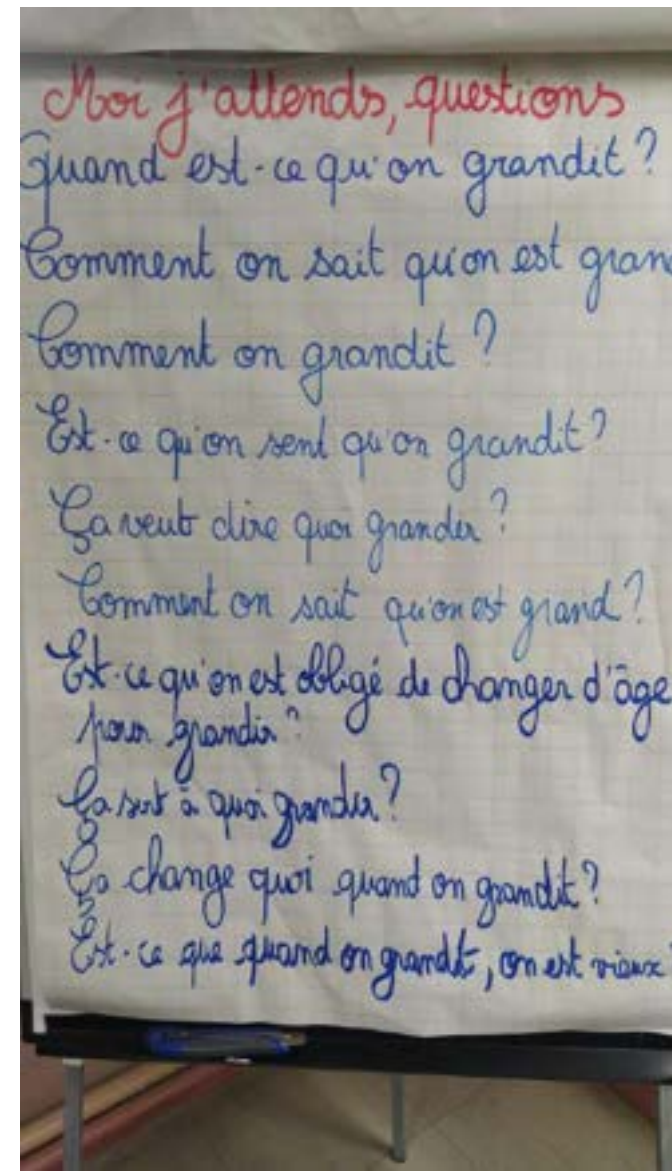 Moi j'attends, questions
Quand est-ce qu'on grandit ?
Comment on sait qu'on est gran
Comment on grandit ?
Est-ce qu'on sent qu'on grandit ?
Ça veut dire quoi grandir ?
Comment on sait qu'on est grand ?
Est-ce qu'on est obligé de changer d'âge
pour grandir ?
Ça sert à quoi grandir ?
Ça change quoi quand on grandit ?
Est-ce que quand on grandit, on est vieux